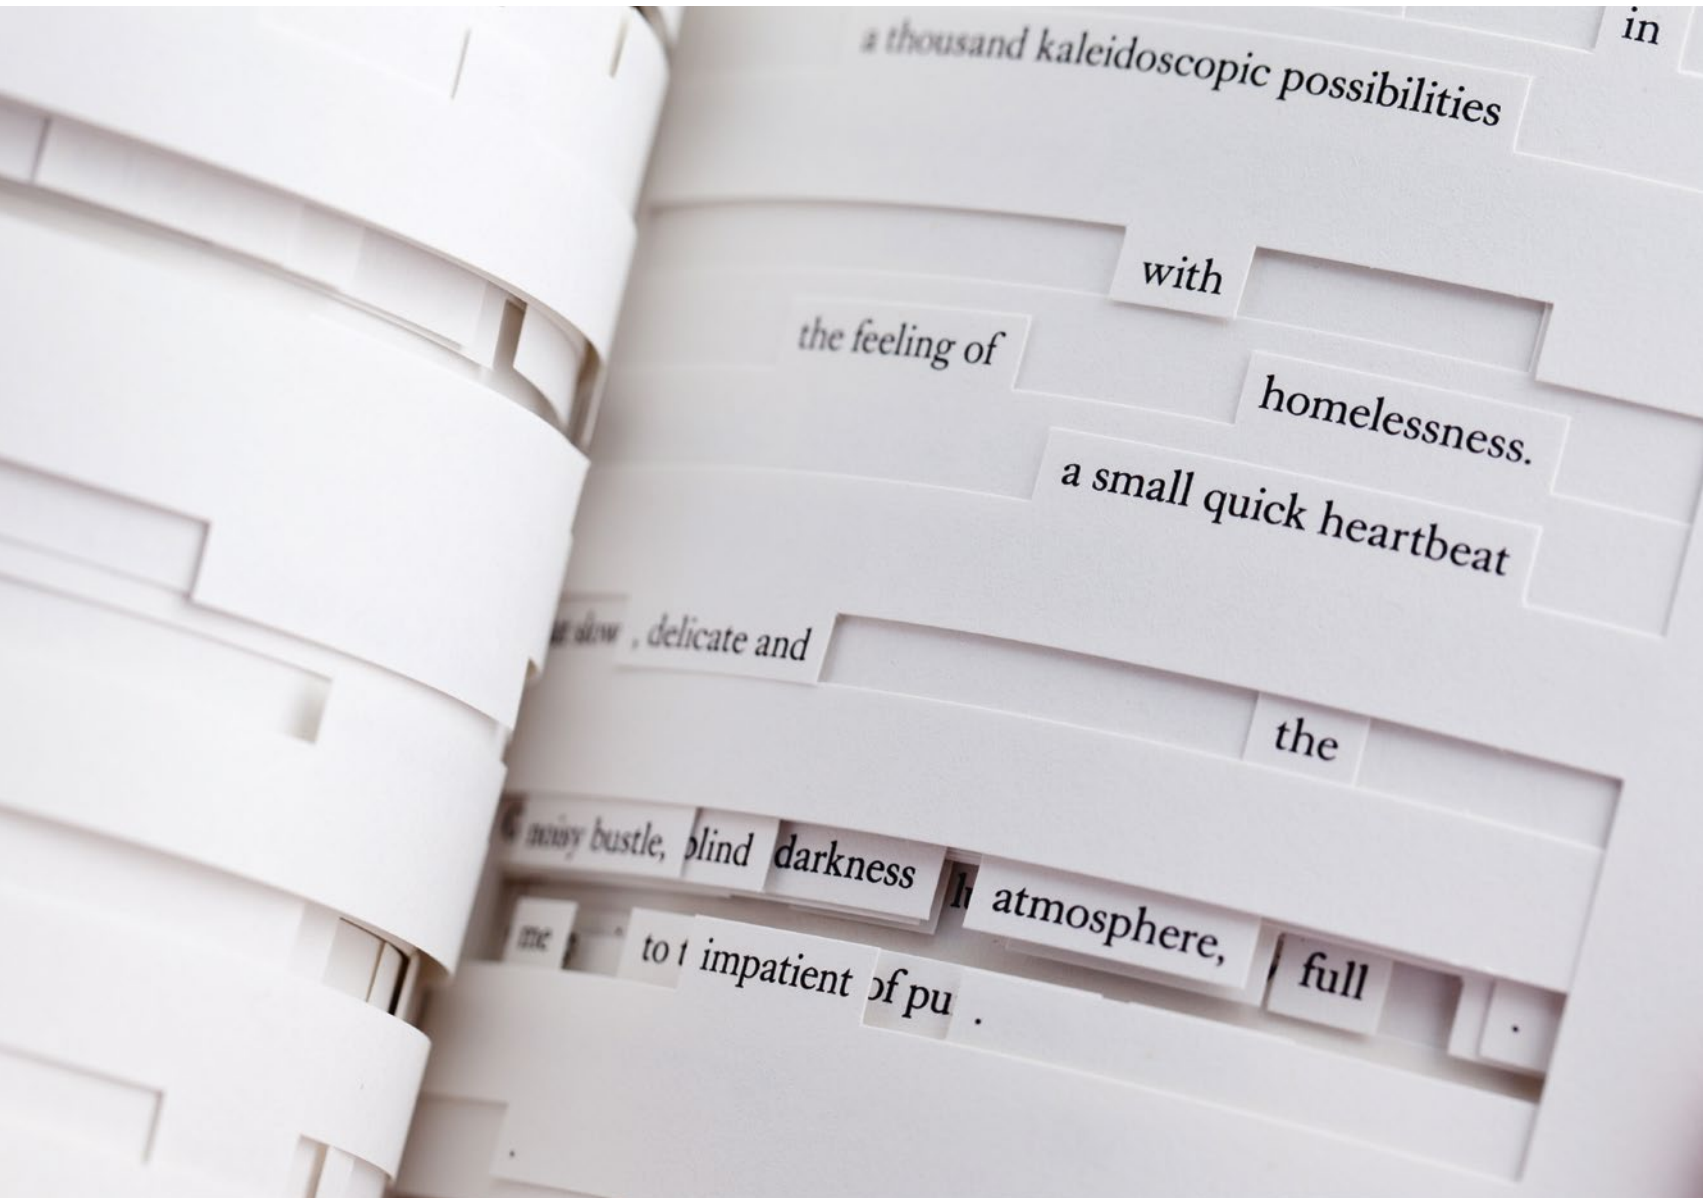 in
a thousand kaleidoscopic possibilities
with
the feeling of
homelessness.
a small quick heartbeat
, delicate and
the
noisy bustle, blind darkness atmosphere, full .
me to t impatient of pu .
.